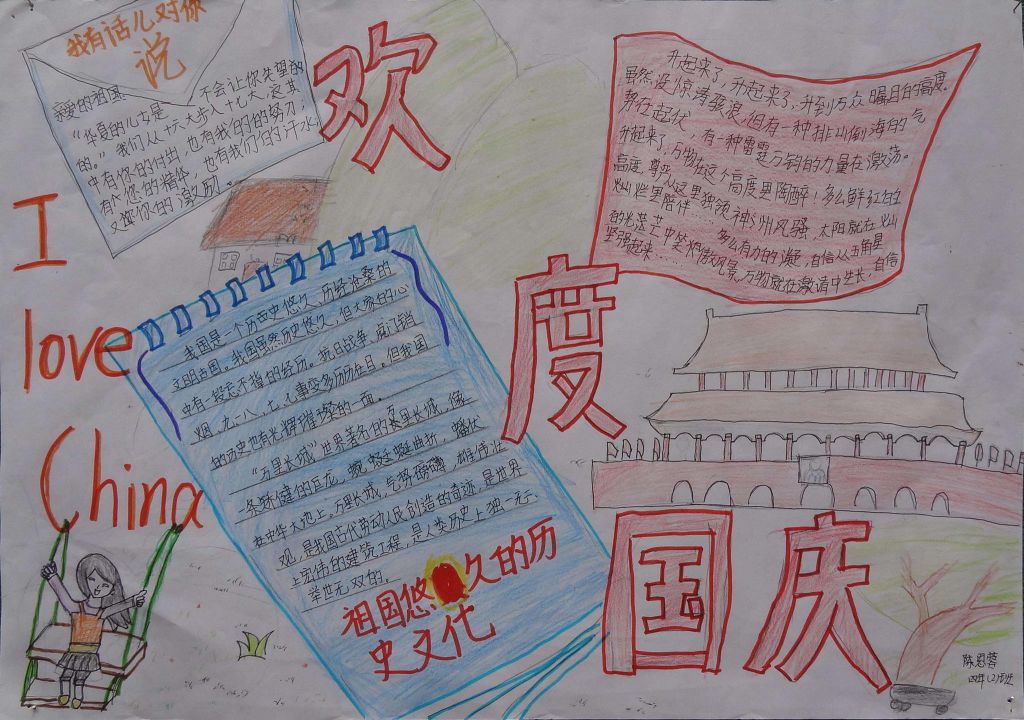 我有话儿对你
说
亲爱的祖国
"华夏的儿女是 不会让你失望的
的。"我们从十六大步入十七大,这其
中有你的付出,也有我的的努力;
有"您的精体"也有我们的汗水
又饰你的激励。
欢
度
国庆
I
love
China
升起来了,升起来了,升到万众瞩目的高度。
虽然没惊涛骇浪,但有一种排山倒海的气
势在起伏,有一种雷霆万钧的力量在激荡。
升起来了,万物在这个高度里陶醉!多么鲜红的
高度,尊严从这里独领神州风骚,太阳就在灿
灿烂里陪伴……多么有力的凝
的光芒中笑傲风景,万物就在激请中生长,自信
坚强起来…
我国是一个历西史悠久、历经沧桑的
文明古国。我国虽然历史悠久,但大家的心
中有一段忘不掉的经历。抗日战争、虎门销
烟、九一八、七.七事变多历历在目。但我国
的历史也有光辉璀璨的一面。
"万里长城"世界著名的万里长城,像
一条矫健的巨龙,蜿蜒曲折,蟠伏
在中华大地上。万里长城,气势磅礴,雄伟壮
观,是我国古代劳动人民创造的奇迹,是世界
上宏伟的建筑工程,是人类历史上独一无二
举世无双的。
祖国悠久的历
史文化
陈思蓉
四年(2)班